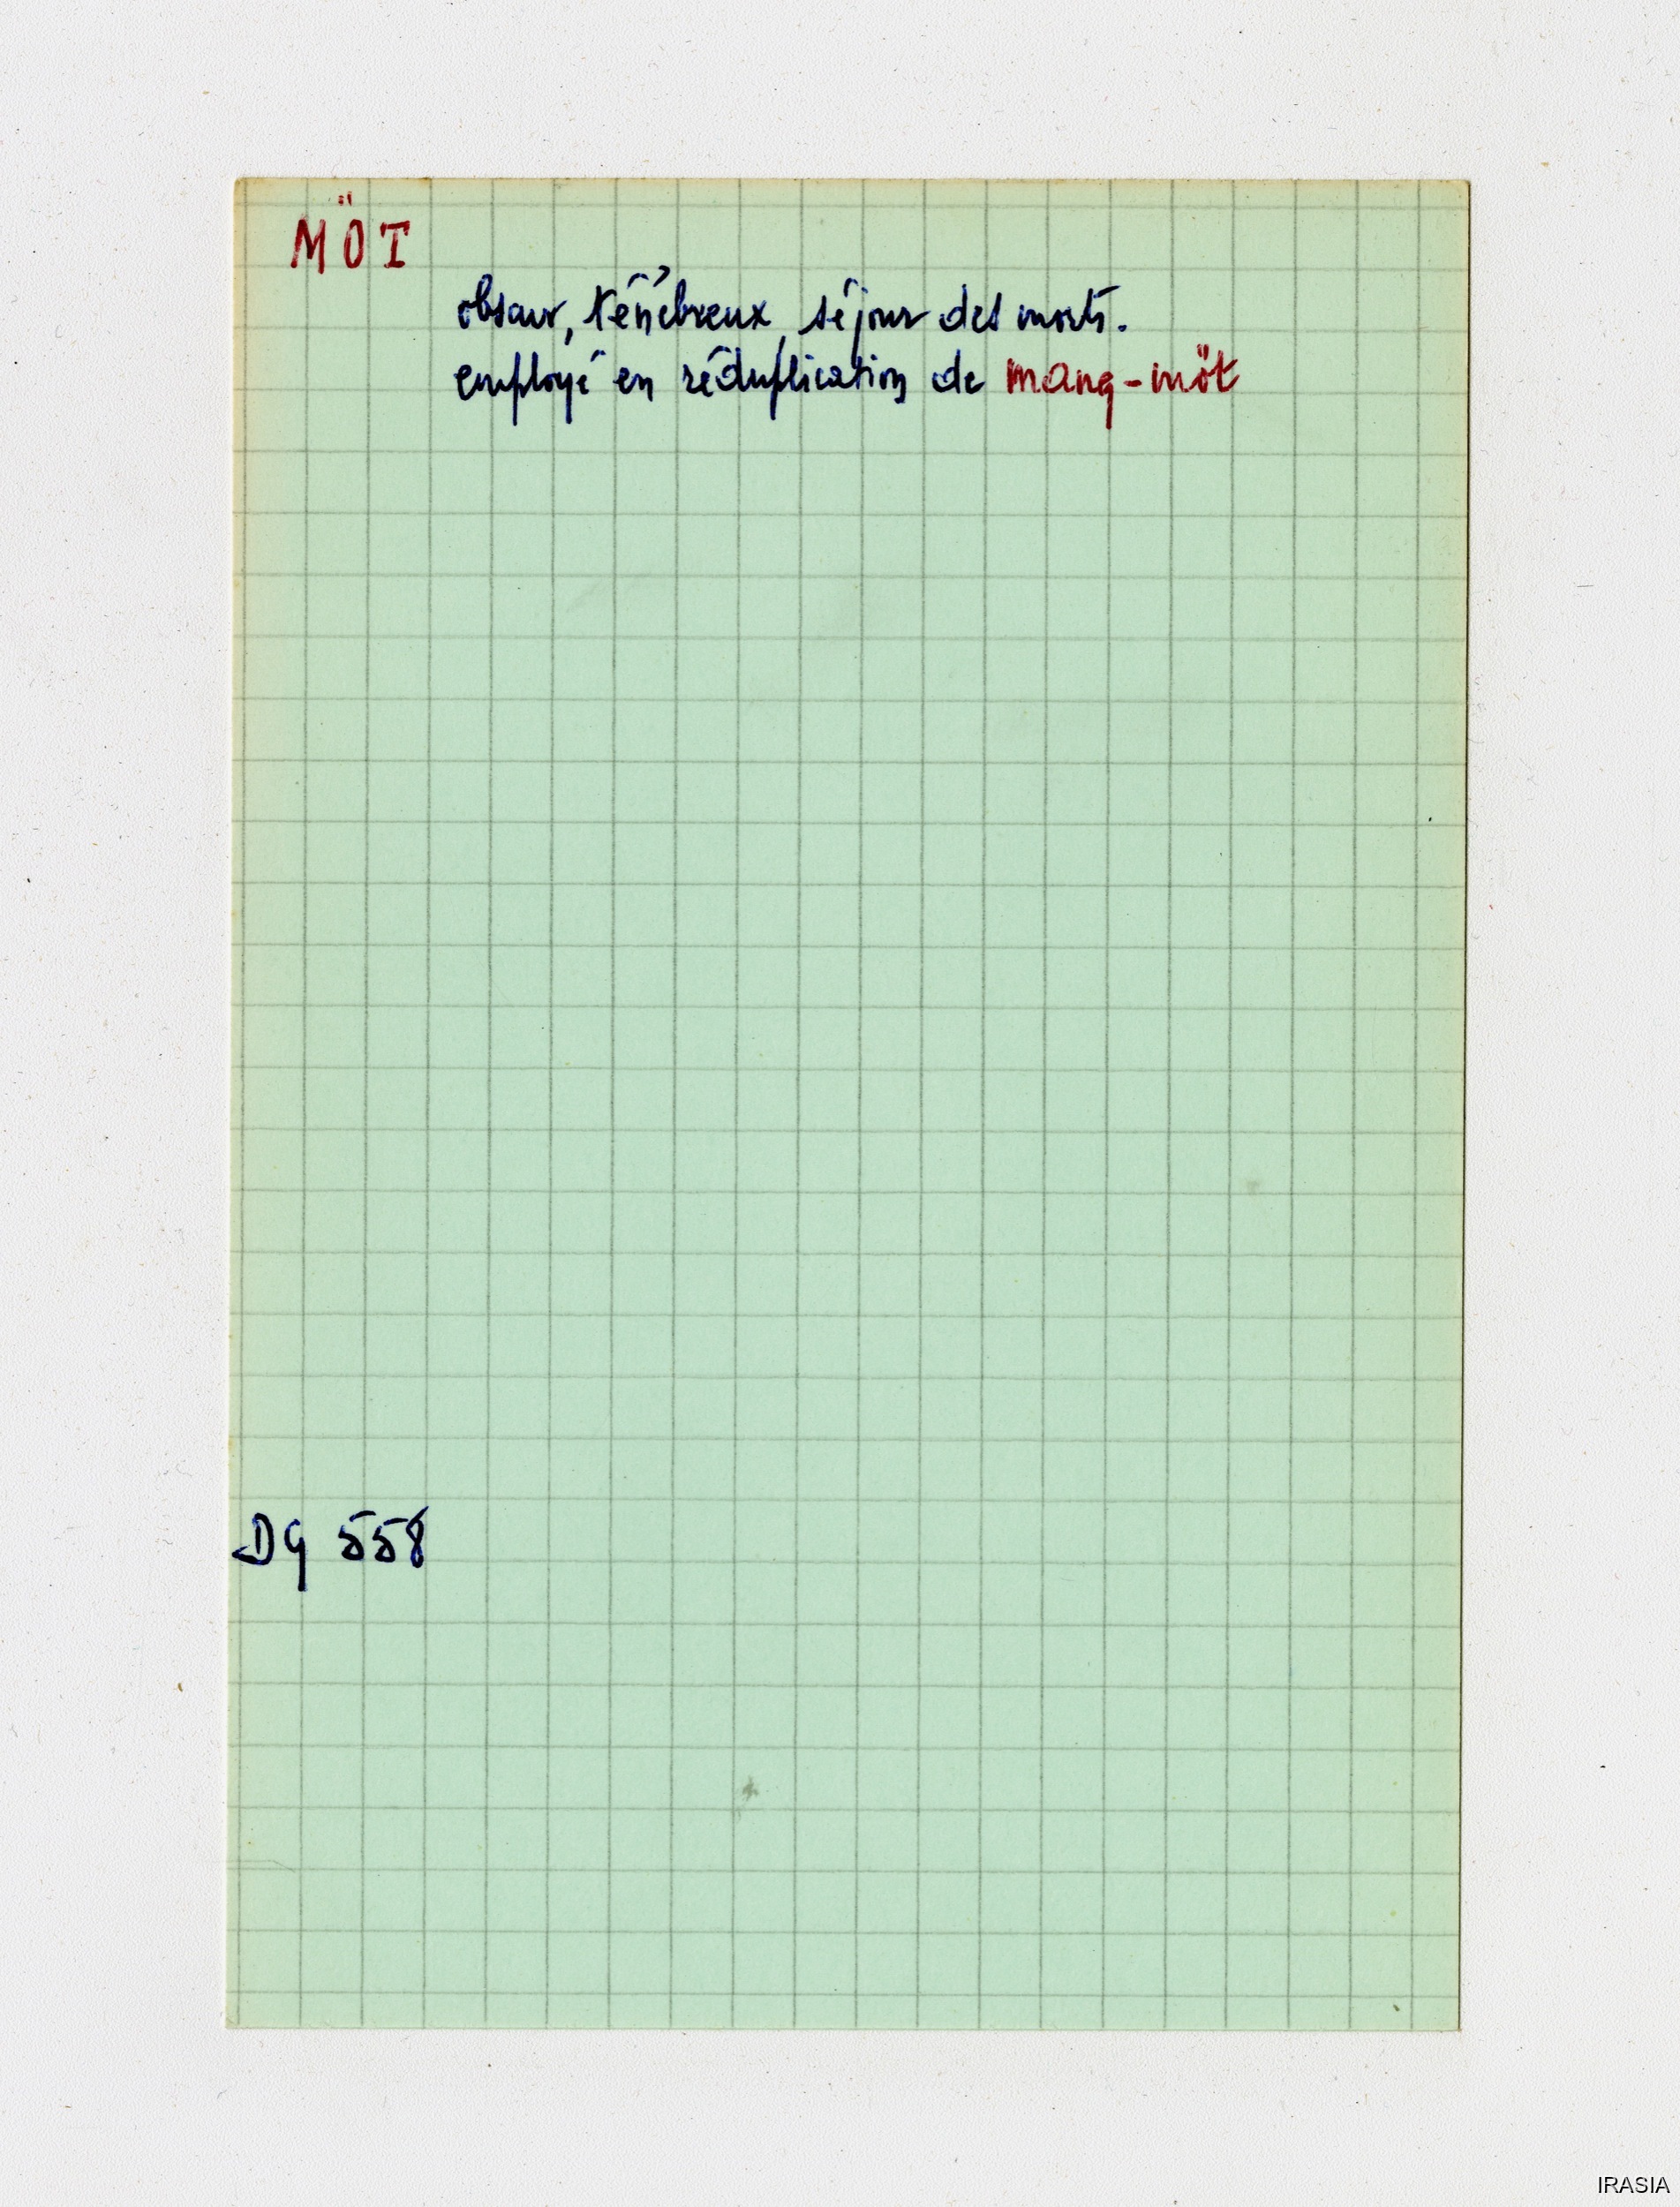 MÖT
obscur, ténébreux, séjour des morts.
employé en réduplication de mang-möt
DG 558
IRASIA